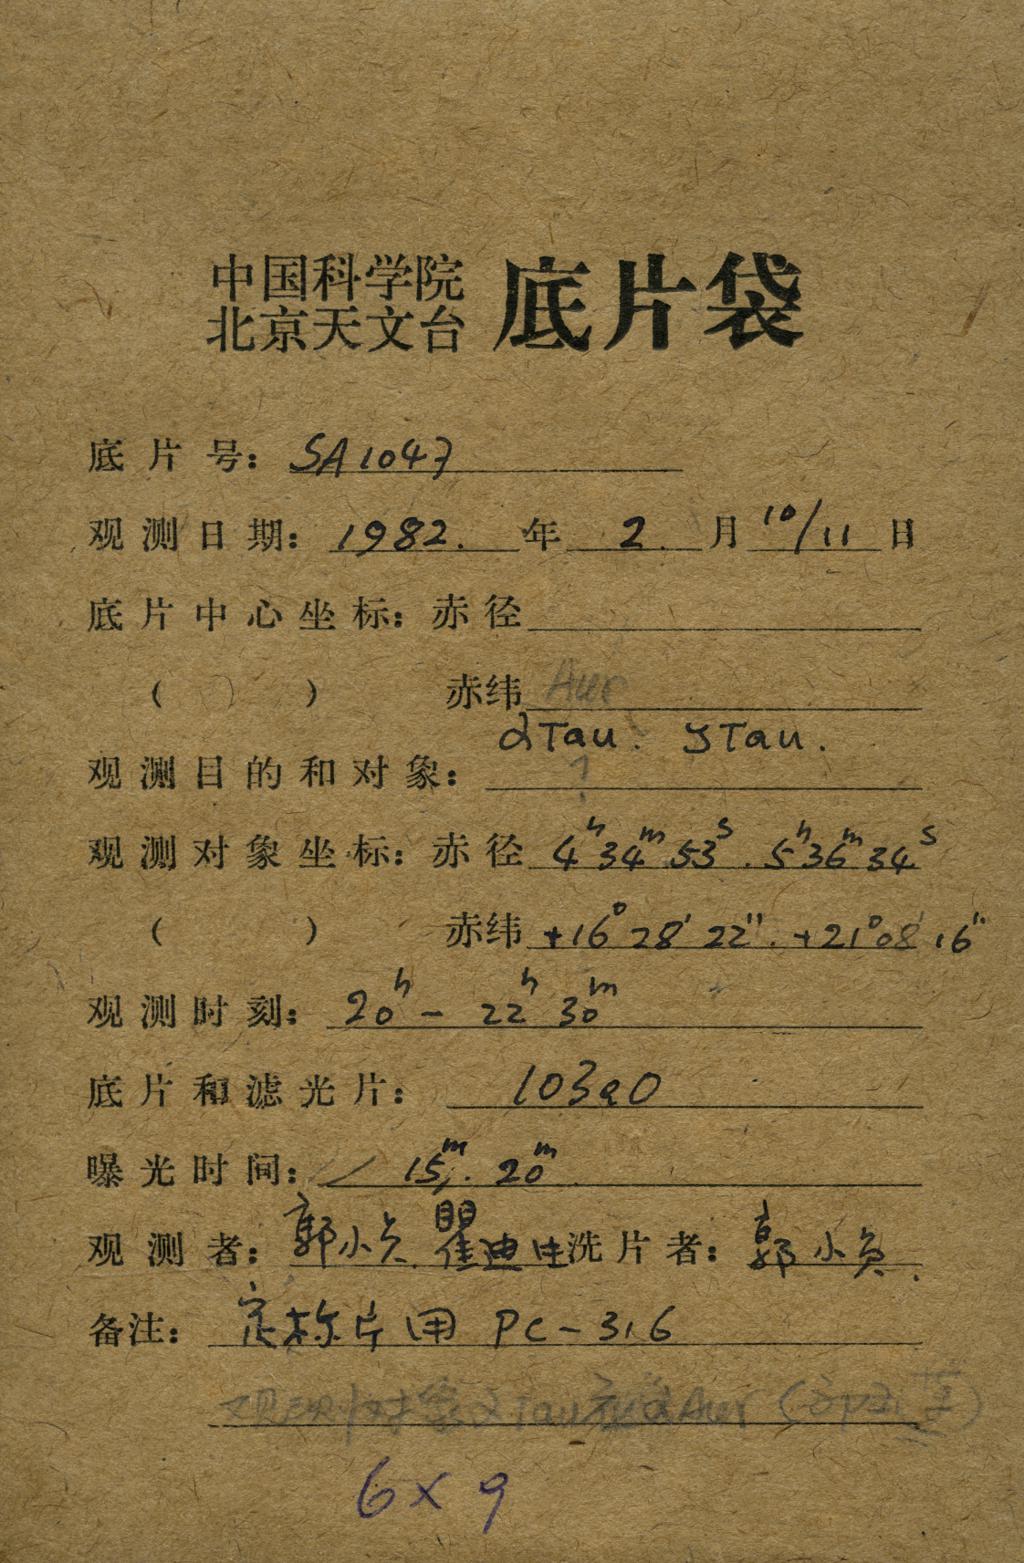 中国科学院
北京天文台 底片袋
底片号: SA1047
观测日期: 1982. 年 2. 月 10/11 日
底片中心坐标: 赤径
( ) 赤纬 Aur
αTau. ζTau.
观测目的和对象:
观测对象坐标: 赤径 4h34m53s. 5h36m34s
( ) 赤纬 +16°28′22″. +21°08′16″
观测时刻: 20h - 22h30m
底片和滤光片: 103aO
曝光时间: 15m. 20m
观测者: 郭小贞. 瞿迪生 洗片者: 郭小贞.
备注: 定标片用 PC-316
观测对象 αTau αAur
6×9